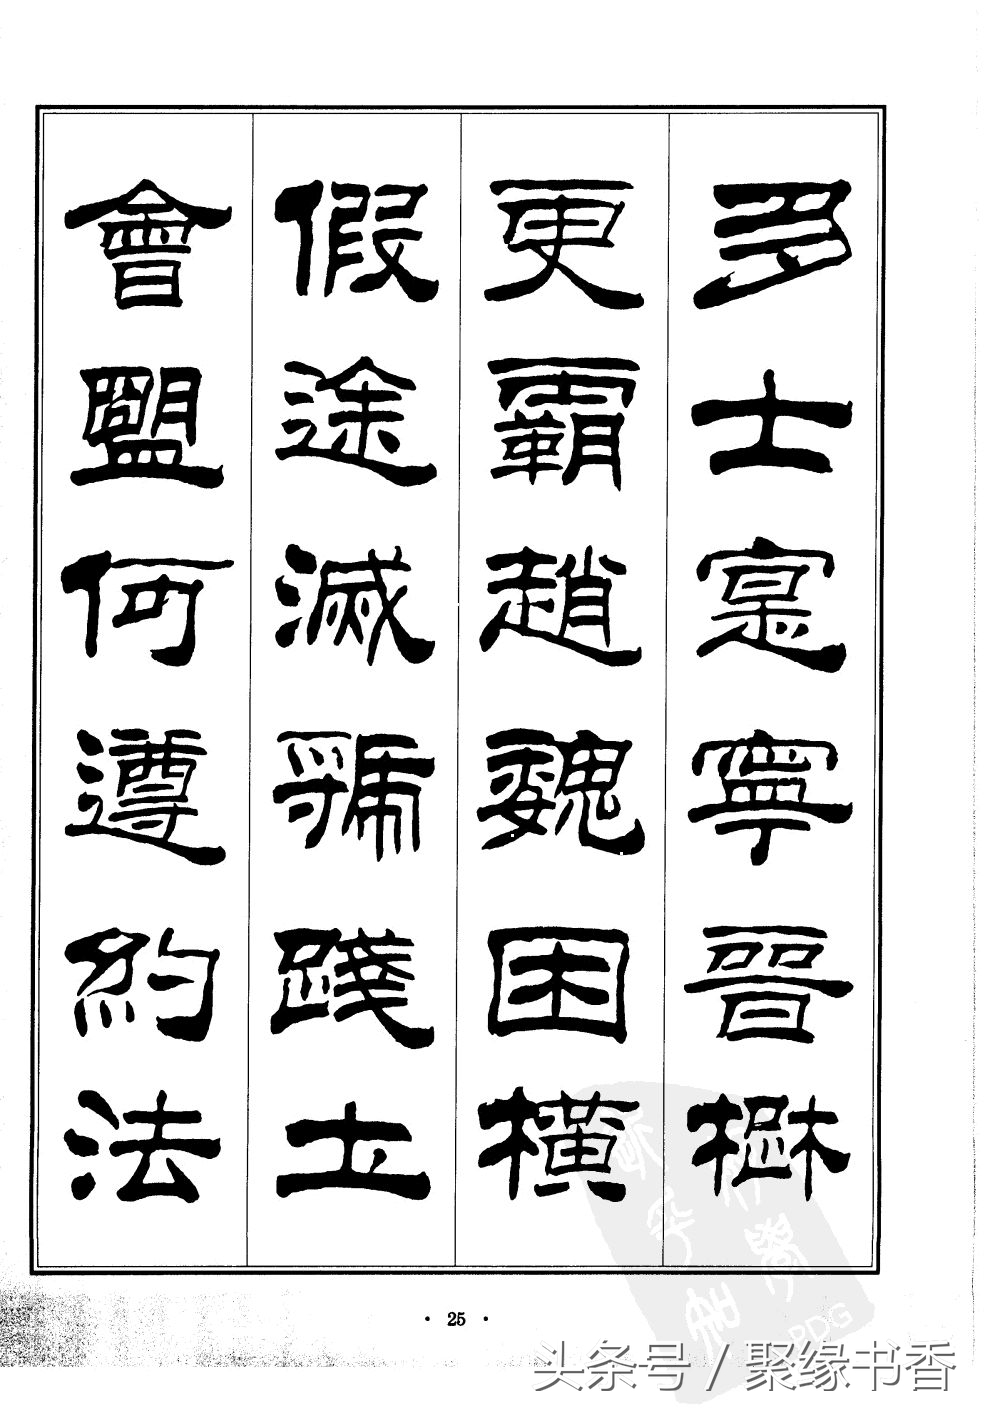 多士寔寧晉楚
更霸趙魏困橫
假途滅虢踐土
會盟何遵約法
· 25 ·
头条号 / 聚缘书香